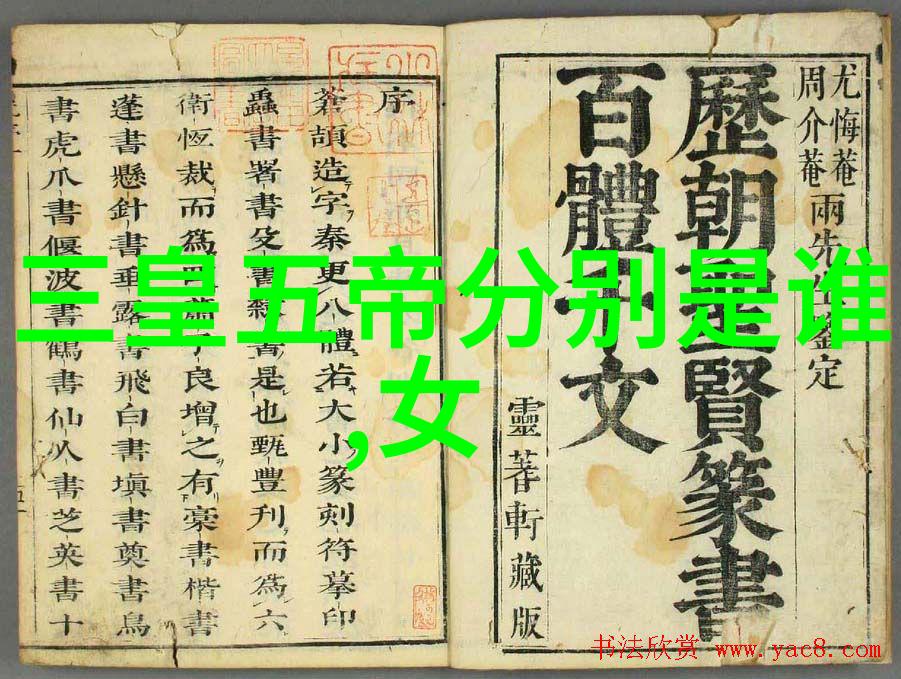 三皇五帝分别是谁
,女
尤悔菴
周介菴
兩先生鑒定
歷朝聖賢篆書
百體千文
靈蓍軒藏版
序
蒼頡造字秦更八體若大小篆刻符摹印
蟲書署書殳書隸書是也甄豐刋而為六
衛恆裁而為四蕭子良增之有稾書楷書
蓬書懸針書垂露書飛白書填書奠書鳥
書虎爪書偃波書鶴書仙人書芝英書十
书法欣赏 www.yac8.com